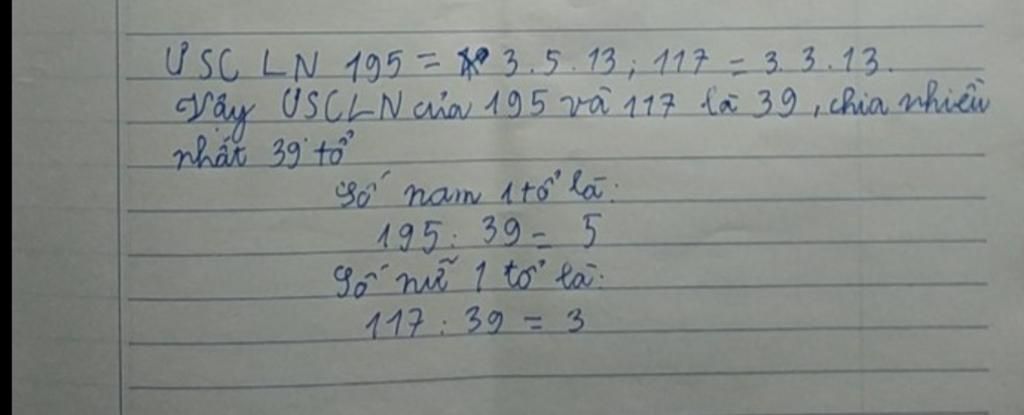 ƯSC LN 195 = 3.5.13; 117 = 3.3.13.
Vậy ƯSCLN của 195 và 117 là 39, chia nhiều
nhất 39 tổ
Số nam 1 tổ là:
195 : 39 = 5
Số nữ 1 tổ là:
117 : 39 = 3